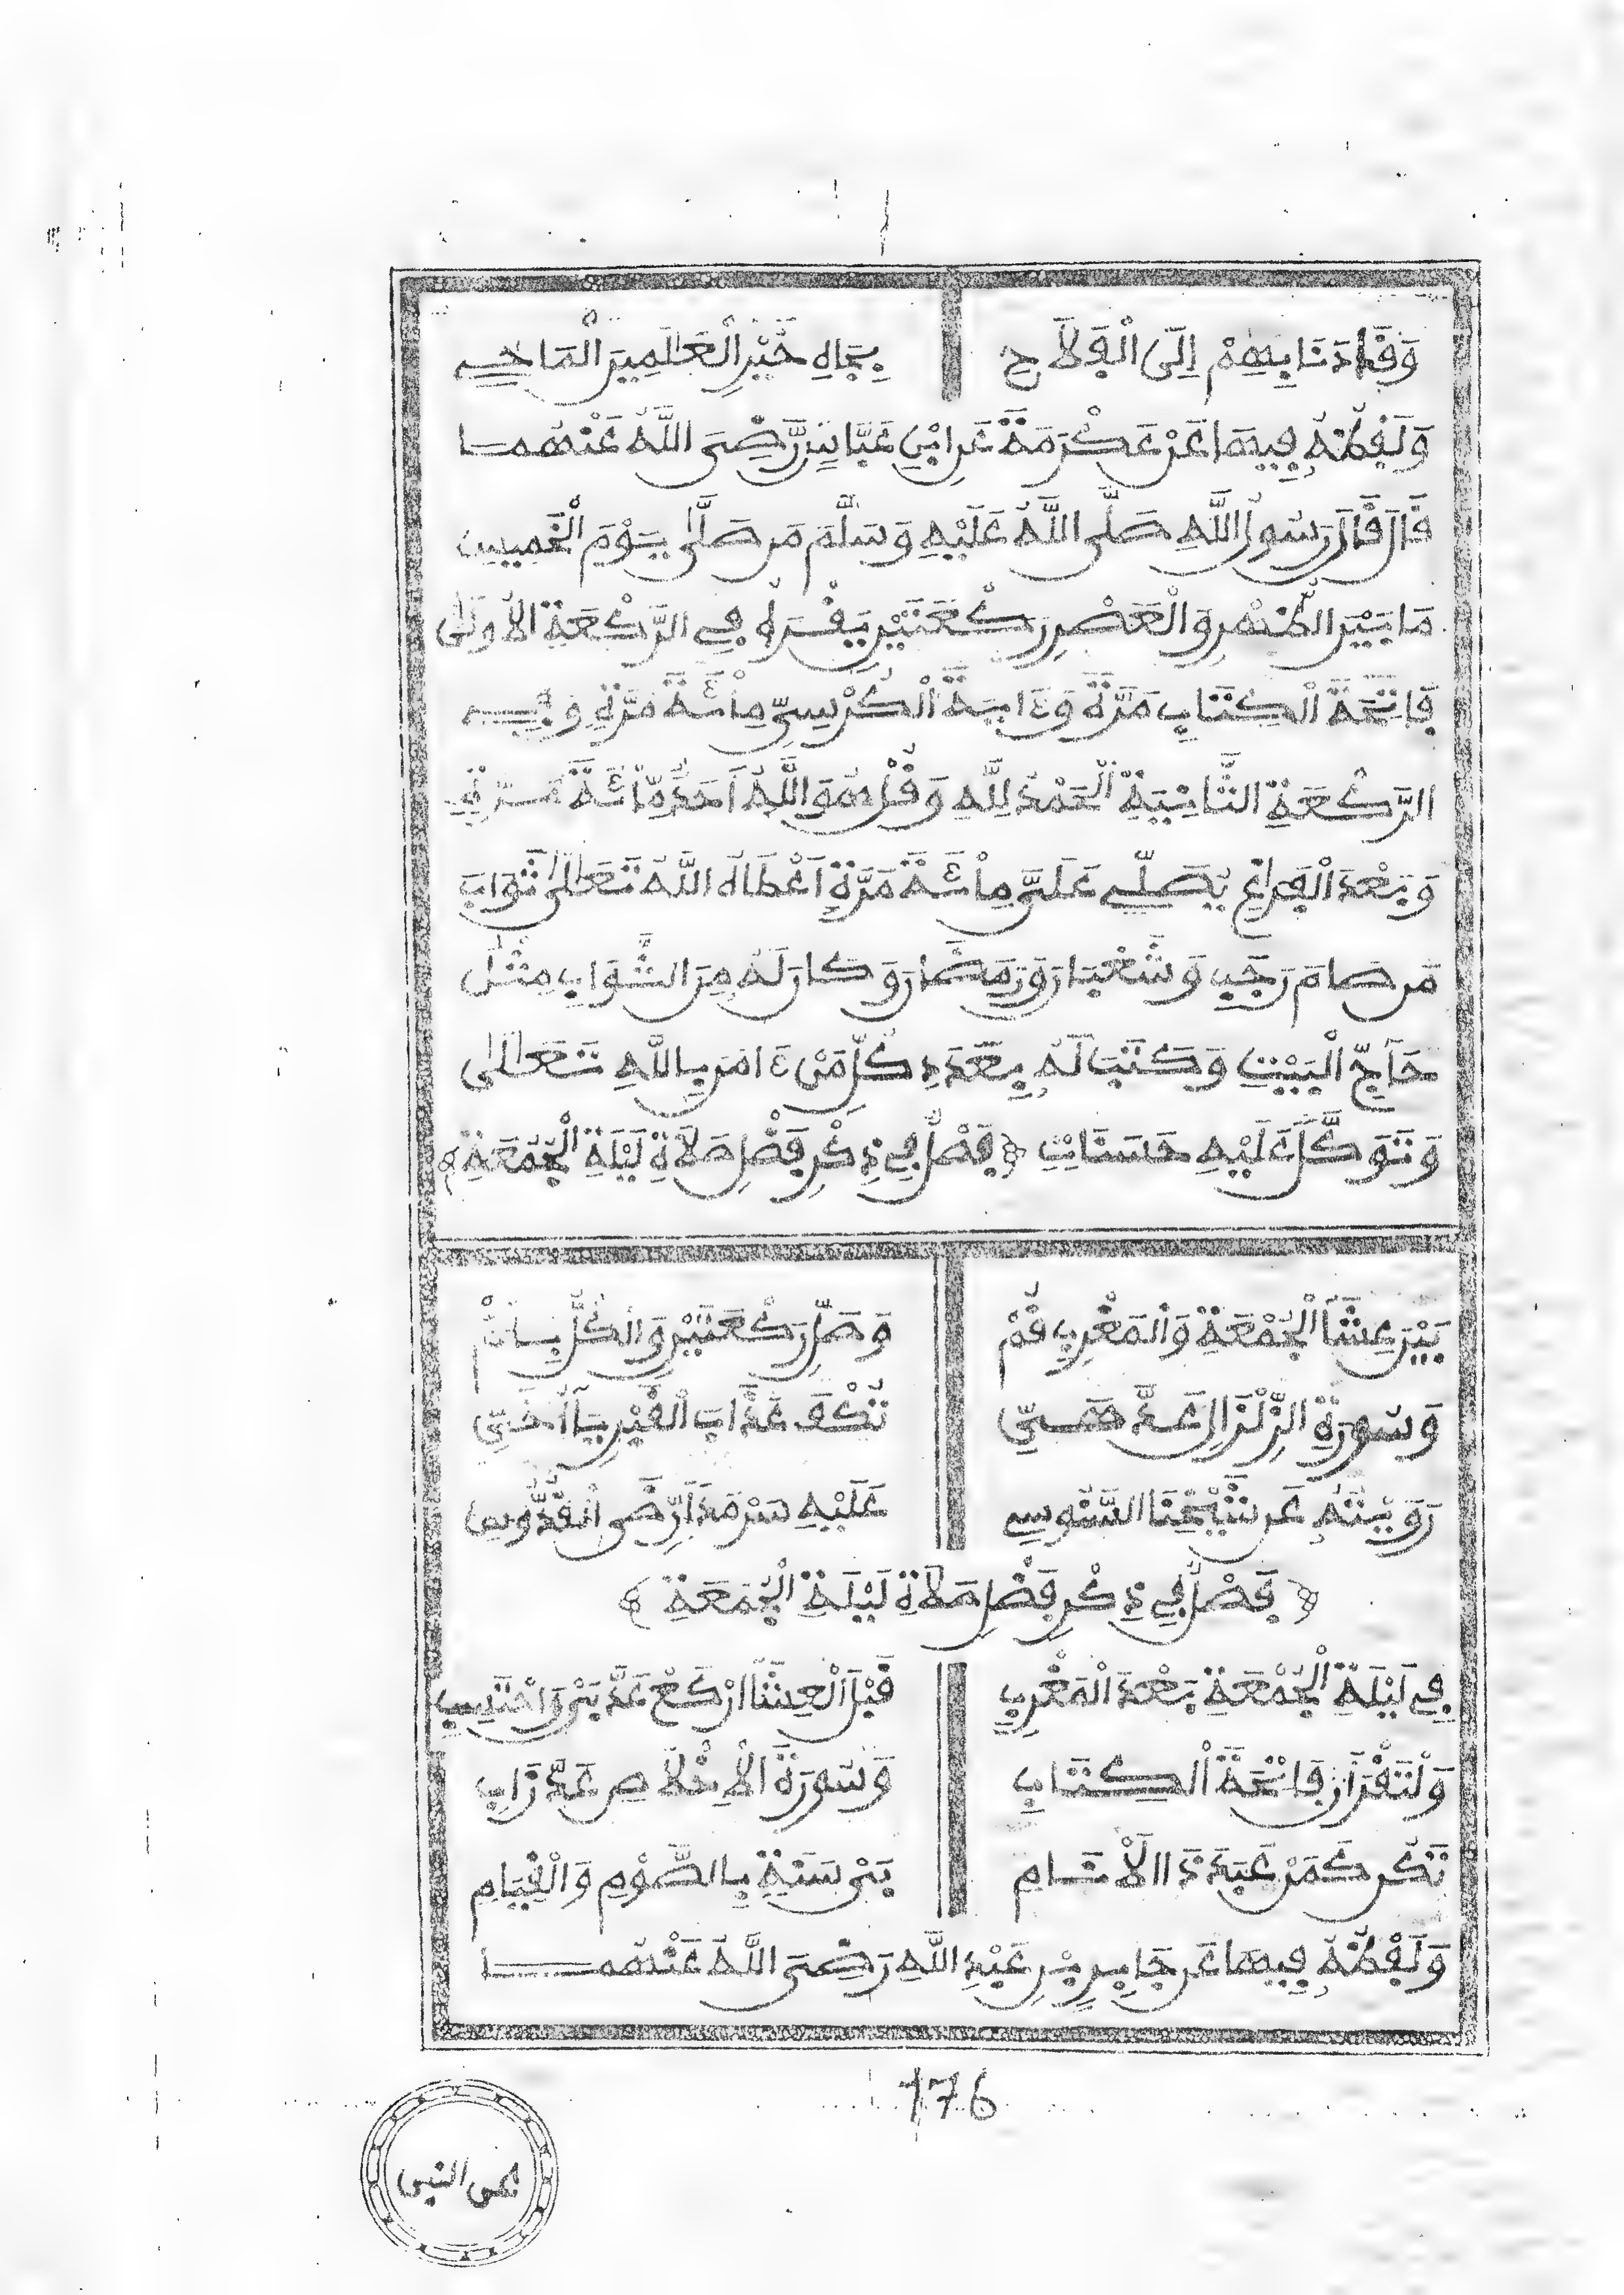 وَقَادَنَا بِهِمْ إِلَى الْفَلَاحِ بِجَاهِ خَيْرِ الْعَالَمِينَ الْمَاحِي
وَلَفْظُهُ فِيهَا عَنْ عَكْرَمَةَ عَنِ ابْنِ عَبَّاسٍ رَّضِيَ اللَّهُ عَنْهُمَا
قَالَ قَالَ رَسُولُ اللَّهِ صَلَّى اللَّهُ عَلَيْهِ وَسَلَّمَ مَن صَلَّى يَوْمَ الْخَمِيسِ
مَا بَيْنَ الظُّهْرِ وَالْعَصْرِ رَكْعَتَيْنِ يَقْرَأُ فِي الرَّكْعَةِ الْأُولَى
فَاتِحَةَ الْكِتَابِ مَرَّةً وَءَايَةَ الْكُرْسِيِّ مِائَةَ مَرَّةٍ وَفِي
الرَّكْعَةِ الثَّانِيَةِ الْحَمْدُ لِلَّهِ وَقُلْ هُوَ اللَّهُ أَحَدٌ مِّائَةَ مَرَّةٍ
وَبَعْدَ الْفَرَاغِ يُصَلِّي عَلَيَّ مِائَةَ مَرَّةٍ أَعْطَاهُ اللَّهُ تَعَالَى ثَوَابَ
مَن صَامَ رَجَبَ وَشَعْبَانَ وَرَمَضَانَ وَكَانَ لَهُ مِنَ الثَّوَابِ مِثْلُ
حَآجِّ الْبَيْتِ وَكَتَبَ لَهُ بِعَدَدِ كُلِّ مَنْ ءَامَنَ بِاللَّهِ تَعَالَى
وَتَوَكَّلَ عَلَيْهِ حَسَنَاتٍ ﴿فَصْلٌ فِي ذِكْرِ فَضْلِ صَلَاةِ لَيْلَةِ الْجُمْعَةِ﴾
بَيْنَ عِشَا الْجُمْعَةِ وَالْمَغْرِبِ قُمْ وَصَلِّ رَكْعَتَيْنِ وَالْكُلَّ بِأُمْ
وَسُورَةِ الزِّلْزَالِ عَدَّ حَسَبِي تُكْفَ عَذَابَ الْقَبْرِ يَا أُخَيِّ
رَوَيْتُهُ عَن شَيْخِنَا السَّنُوسِي عَلَيْهِ سَرْمَدًا رِّضَى الْقُدُّوسِ
﴿فَصْلٌ فِي ذِكْرِ فَضْلِ صَلَاةِ لَيْلَةِ الْجُمَعَةِ﴾
فِي لَيْلَةِ الْجُمْعَةِ بَعْدَ الْمَغْرِبِ قَبْلَ الْعِشَا ارْكَعْ عَدَّ يَبْ وَاحْتَسِبِ
وَلْتَقْرَأَنْ فَاتِحَةَ الْكِتَابِ وَسُورَةَ الْإِخْلَاصِ عَدَّ زَابِ
تَكُن كَمَنْ عَبَدَ ذَا الْأَنَامِ يَبَ سَنَةٍ بِالصَّوْمِ وَالْقِيَامِ
وَلَفْظُهُ فِيهَا عَن جَابِرِ بْنِ عَبْدِ اللَّهِ رَضِيَ اللَّهُ عَنْهُمَا
176
النبي